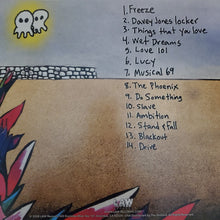 1. Freeze
2. Davey Jones locker
3. Things that you love
4. Wet Dreams
5. Love 101
6. Lucy
7. Musical 69
8. The Phoenix
9. Do Something
10. Slave
11. Ambition
12. Stand & Fall
13. Blackout
14. Drive
LAW